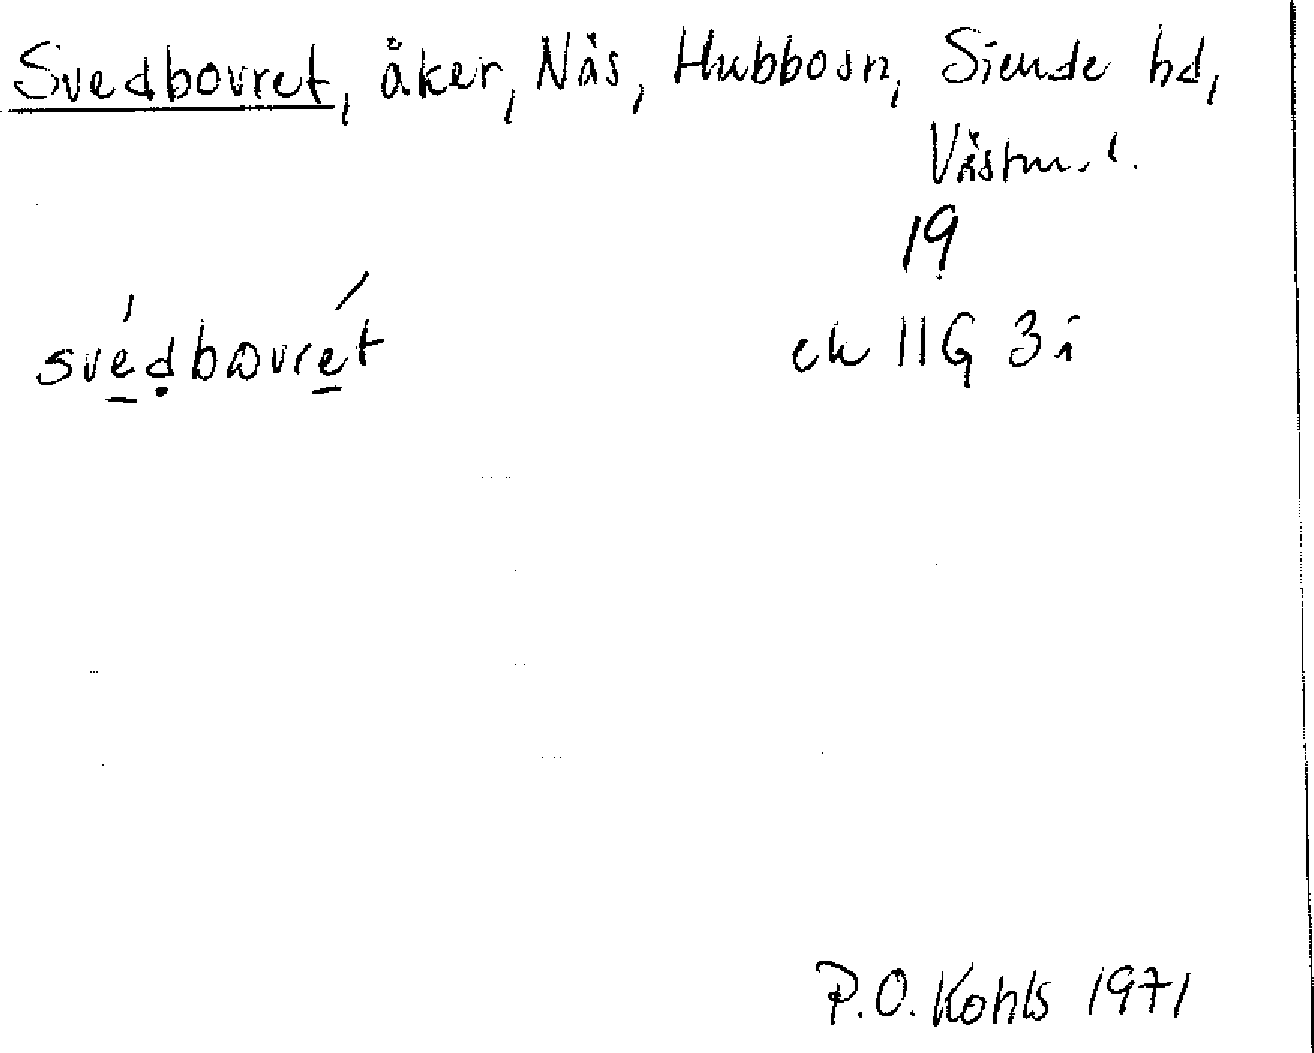 Svedbovret, åker, Näs, Hubbo sn, Siende hd,
Västm. l.
19
svédbovrét
ek 11G 3i
P.O. Kohls 1971